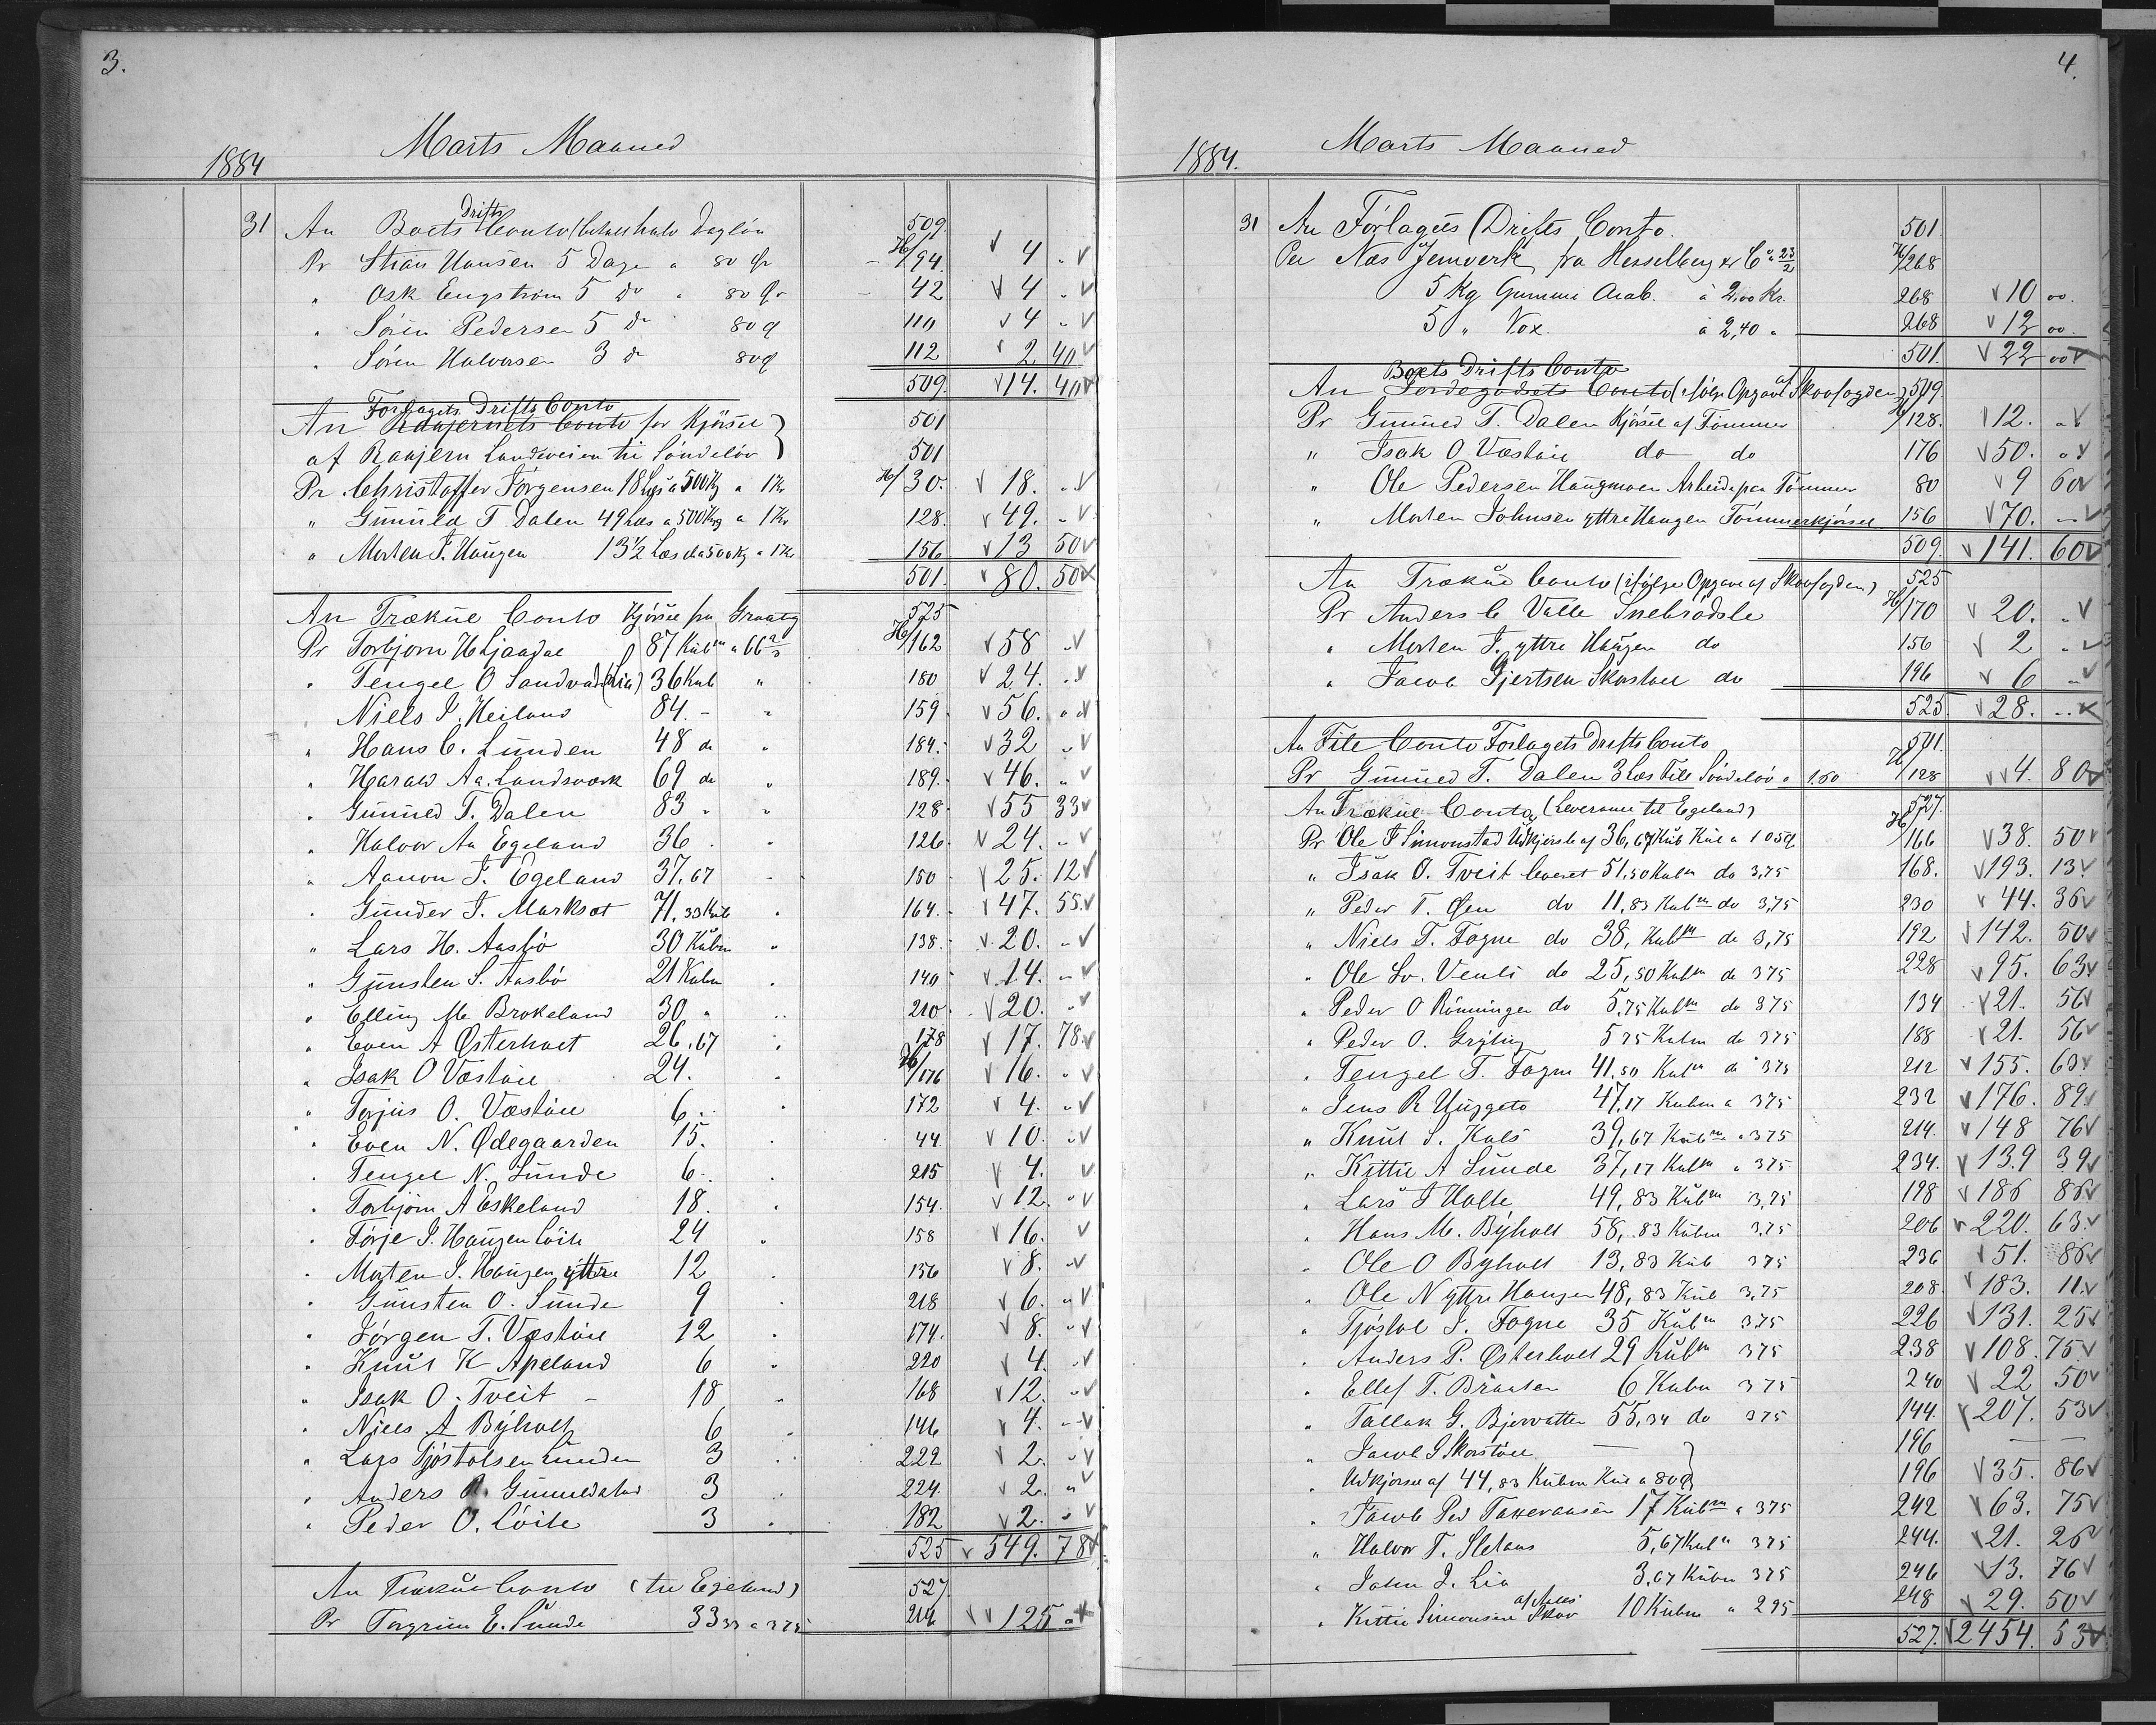 3.
1884 Marts Maaned
31 An Boets Drifts Conto Daglön 509
Pr Stian Hansen 5 Dage a 80 Ør H/194 4 "
" Osk Engström 5 do " 80 Ør 42 4 "
" Sören Pedersen 5 do 80 Ø 110 4 "
" Sören Halvorsen 3 do 80 Ø 112 2 40
509. 14. 40
Forlagets Drifts Conto
An Conto for Kjörsel 501
af Raajern Landeveien til Söndelöv 501
Pr Christoffer Jörgensen 18 Læs a 500 Kg a 1 Kr H/30. 18. "
" Gunuld T. Dalen 49 Læs a 500 Kg a 1 Kr 128. 49. "
" Morten J. Haugen 13½ Læs a 500 Kg a 1 Kr 156 13 50
501. 80. 50
An Trækul Conto Kjörsel fra 525
Pr Torbjörn H Ljaadal 87 Kubm a 66⅔ H/162 58 "
" Tengel O Landvad (Lia) 36 Kub " 180 24. "
" Niels J. Heiland 84. - " 159 56. "
" Hans C. Lunden 48 do " 184. 32 "
" Harald Aa. Landsværk 69 do " 189. 46. "
" Gunuld T. Dalen 83 " " 128 55 33
" Halvor Aa Egeland 36 " 126 24. "
" Aanon T. Egeland 37.67 " 150 25. 12
" Gunder T. Marksæt 71.33 Kub " 164. 47. 55
" Lars H. Aasbö 30 Kubm " 138. 20. "
" Gunsten S. Aasbö 21 Kubm " 140 14. "
" Elling M. Brokeland 30 " " 210. 20. "
" Even A Østerholt 26,67 " 178 17. 78
" Isak O Væstöl 24. " H/176 16. "
" Terjus O. Væstöl 6. " 172 4. "
" Even N. Ødegaarden 15. 44 10. "
" Tengel N. Sunde 6. 215 4.
" Torbjörn A Eskeland 18. " 154. 12. "
" Törje J. Haugen Löite 24 " 158 16.
" Morten J. Haugen yttre 12 " 156 8. "
" Gunsten O. Sunde 9 " 218 6. "
" Jörgen T. Væstöl 12 " 174. 8. "
" Knut K Apeland 6 " 220 4. "
" Isak O. Tveit - 18 " 168 12. "
" Niels A Byholt 6 " 146 4. "
" Lars Tjöstolsen Lunden 3 " 222 2. "
" Anders R. Gunuldstad 3 " 224. 2. "
" Peder O. Löite 3 " 182 2. "
525 549. 78
An Trækul Conto (til Egeland) 527
Pr Torgrim E. Sunde 33 33 a 375 214 125 "
4.
1884. Marts Maaned
31 An Forlagets Drifts Conto. 501
Per Næs Jernverk fra Hesselberg & Co 23/2 H/268
5 Kg Gummi Arab. à 2,00 Kr. 268 10 00.
5 " Vox. à 2,40 " 268 12 00.
501. 22 00
Boets Drifts Conto
An Jordegodsets Conto (ifölge Opgave af Skovfogden) 509.
Pr Gunuld T. Dalen Kjörsel af Tömmer H/128. 12. "
" Isak O Væstöl do do 176 50. "
" Ole Pedersen Haugmoen Arbeide paa Tömmer 80 9 60
" Morten Johnsen yttre Haugen Tömmerkjörsel 156 70. "
509. 141. 60
An Trækul Conto (ifölge Opgave af Skovfogden) 525
Pr Anders C Valle Snebrödsle H/170 20. "
" Morten J. yttre Haugen do 156 2 "
" Jacob Gjertsen Skorstöl do 196 6 "
525 28. "
An File Conto Forlagets Drifts Conto 501.
Pr Gunuld T. Dalen 3 Læs File Söndelöv a 1.60 H/128 4. 80
An Trækul Conto (Leverance til Egeland) 527.
Pr Ole T Simonstad Udkjörsle af 36,67 Kub Kul a 105 Ø. H/166 38. 50
" Isak O. Tveit leveret 51,50 Kubm do 3,75 168. 193. 13
" Peder T. Øen do 11,83 Kubm do 3,75 230 44. 36
" Niels T. Fogne do 38, Kubm do 3,75 192 142. 50
" Ole Sv. Veuli do 25,50 Kubm do 375 228 95. 63
" Peder O Rönningen do 5.75 Kubm do 375 134 21. 56
" Peder O. Gryting 5 75 Kubm do 375 188 21. 56
" Tengel T. Fogne 41.50 Kubm do 375 212 155. 63
" Jens R Uggeto 47,17 Kubm a 375 232 176. 89
" Knut S. Kals 39,67 Kubm " 375 214. 148 76
" Kittil A Sunde 37,17 Kubm " 375 234. 139 39
" Lars T Holte 49,83 Kubm 3,75 198 186 86
" Hans M. Byholt 58,83 Kubm 3.75 206 220. 63
" Ole O Byholt 13,83 Kub 375 236 51. 86
" Ole N yttre Haugen 48,83 Kub 3,75 208. 183. 11
" Tjöstol S. Fogne 35 Kubm 375 226 131. 25
" Anders P. Østerholt 29 Kubm 375 238 108. 75
" Ellef T. Braaten 6 Kubm 375 240 22 50
" Tallak G. Bjorvatten 55,34 do 375 144. 207. 53
" Jacob G Skorstöl 196 —
" Udkjörsel af 44,83 Kubm Kul a 80 Ø 196 35. 86
" Jacob Ped Takseraasen 17 Kubm a 375 242 63. 75
" Halvor T. Sletaas 5,67 Kubm 375 244. 21. 26
" John J. Lia 3,67 Kubm 375 246 13. 76
" Kittil Simonsen af Næs Skov 10 Kubm " 295 248 29. 50
527. 2454. 53